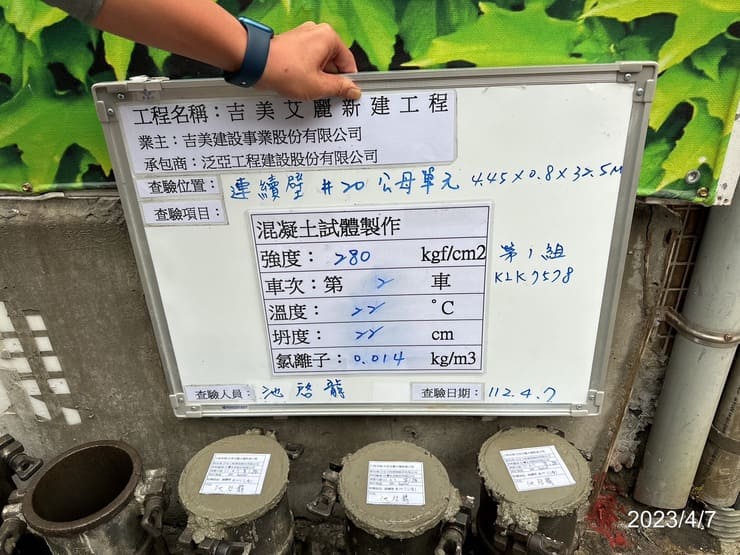 工程名稱：吉美艾麗新建工程
業主：吉美建設事業股份有限公司
承包商：泛亞工程建設股份有限公司
查驗位置： 連續壁 #20 公母單元 4.45×0.8×32.5M
查驗項目：
混凝土試體製作
強度： 280 kgf/cm2
車次：第 2 車
溫度： 22 °C
坍度： 22 cm
氯離子：0.014 kg/m3
第1組
KLK7578
查驗人員： 池啓龍
查驗日期： 112.4.7
池啓龍
池啓龍
池啓龍
2023/4/7